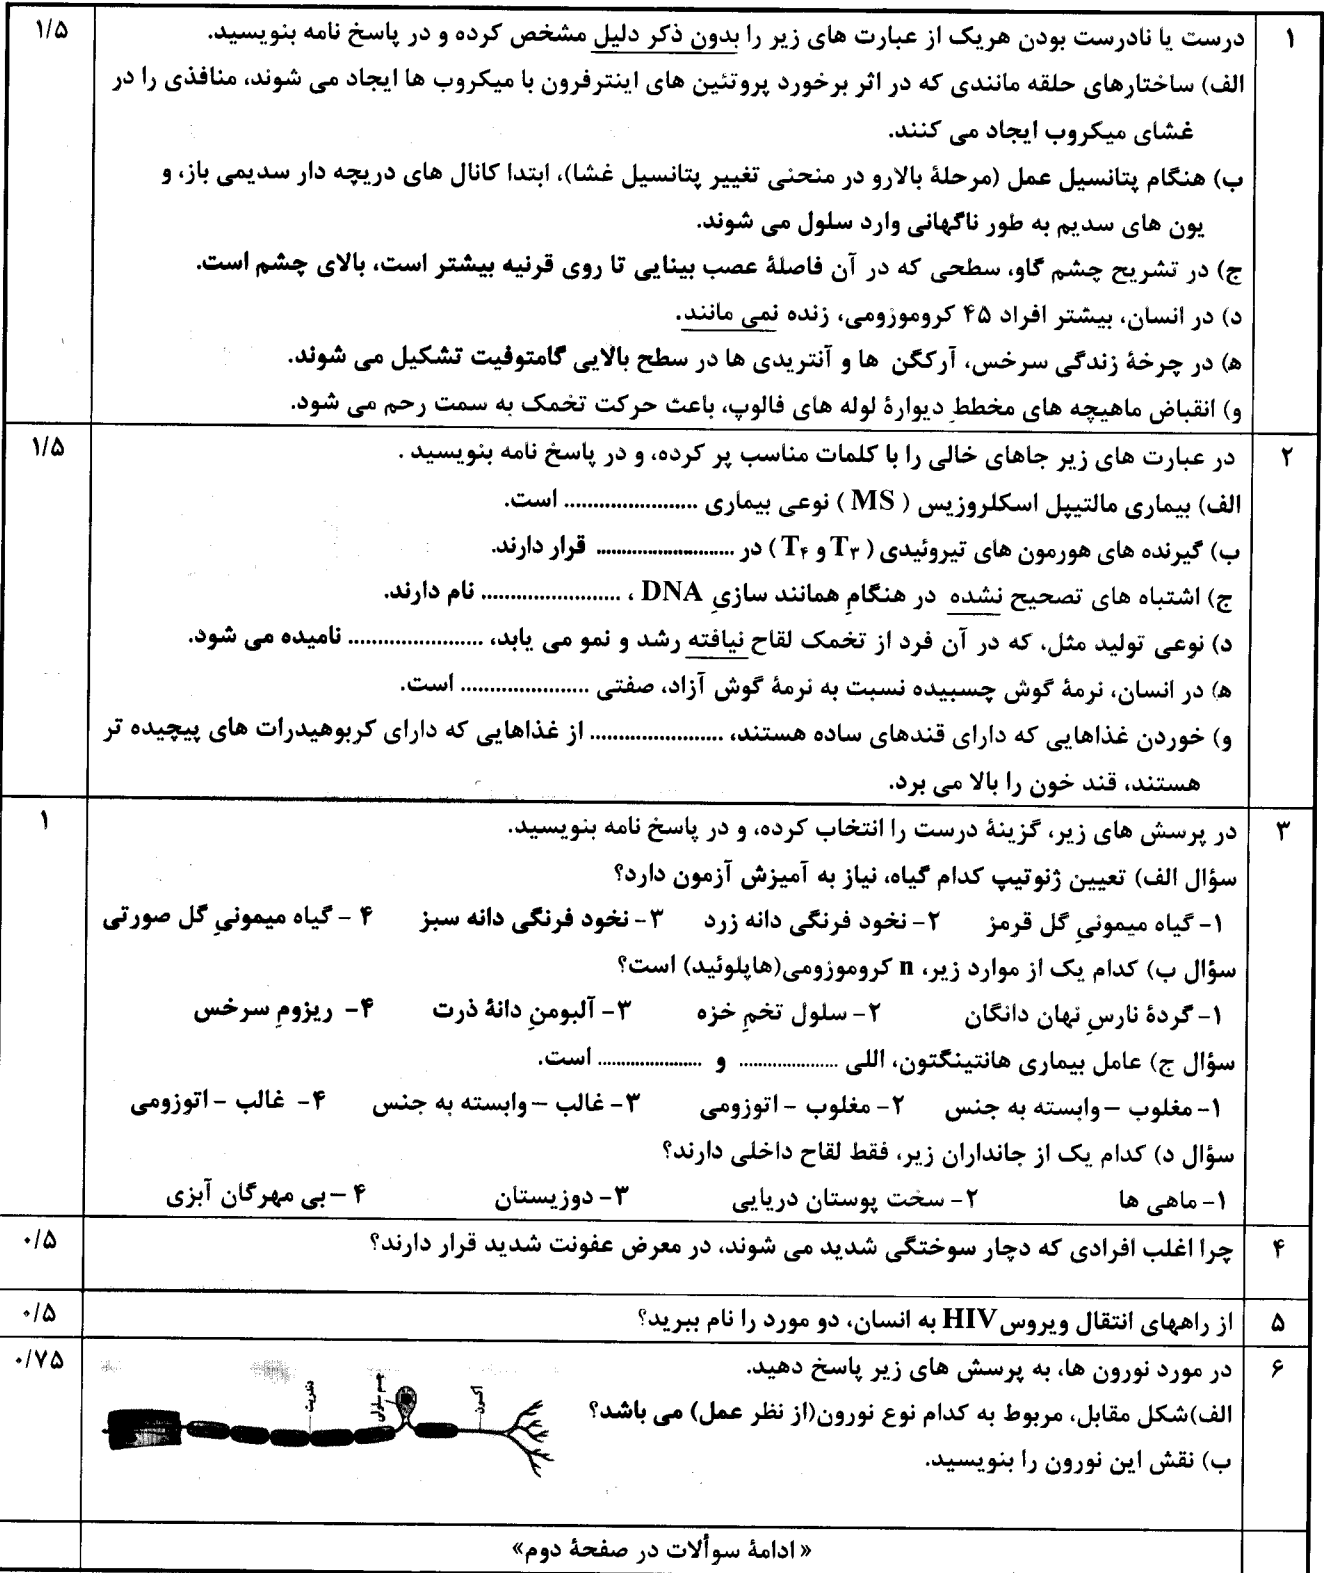 ۱ درست یا نادرست بودن هریک از عبارت های زیر را بدون ذکر دلیل مشخص کرده و در پاسخ نامه بنویسید. ۱/۵
الف) ساختارهای حلقه مانندی که در اثر برخورد پروتئین های اینترفرون با میکروب ها ایجاد می شوند، منافذی را در
غشای میکروب ایجاد می کنند.
ب) هنگام پتانسیل عمل (مرحلهٔ بالارو در منحنی تغییر پتانسیل غشا)، ابتدا کانال های دریچه دار سدیمی باز، و
یون های سدیم به طور ناگهانی وارد سلول می شوند.
ج) در تشریح چشم گاو، سطحی که در آن فاصلهٔ عصب بینایی تا روی قرنیه بیشتر است، بالای چشم است.
د) در انسان، بیشتر افراد ۴۵ کروموزومی، زنده نمی مانند.
ه) در چرخهٔ زندگی سرخس، آرکگن ها و آنتریدی ها در سطح بالایی گامتوفیت تشکیل می شوند.
و) انقباض ماهیچه های مخططِ دیوارهٔ لوله های فالوپ، باعث حرکت تخمک به سمت رحم می شود.
۲ در عبارت های زیر جاهای خالی را با کلمات مناسب پر کرده، و در پاسخ نامه بنویسید . ۱/۵
الف) بیماری مالتیپل اسکلروزیس ( MS ) نوعی بیماری ........................ است.
ب) گیرنده های هورمون های تیروئیدی ( T۳ و T۴ ) در ........................ قرار دارند.
ج) اشتباه های تصحیح نشده در هنگامِ همانند سازیِ DNA ، ........................ نام دارند.
د) نوعی تولید مثل، که در آن فرد از تخمک لقاح نیافته رشد و نمو می یابد، ........................ نامیده می شود.
ه) در انسان، نرمهٔ گوش چسبیده نسبت به نرمهٔ گوش آزاد، صفتی ........................ است.
و) خوردن غذاهایی که دارای قندهای ساده هستند، ........................ از غذاهایی که دارای کربوهیدرات های پیچیده تر
هستند، قند خون را بالا می برد.
۳ در پرسش های زیر، گزینهٔ درست را انتخاب کرده، و در پاسخ نامه بنویسید. ۱
سؤال الف) تعیین ژنوتیپ کدام گیاه، نیاز به آمیزش آزمون دارد؟
۱- گیاه میمونیِ گل قرمز ۲- نخود فرنگی دانه زرد ۳- نخود فرنگی دانه سبز ۴ - گیاه میمونیِ گل صورتی
سؤال ب) کدام یک از موارد زیر، n کروموزومی(هاپلوئید) است؟
۱- گردهٔ نارسِ نهان دانگان ۲- سلول تخمِ خزه ۳- آلبومنِ دانهٔ ذرت ۴- ریزومِ سرخس
سؤال ج) عامل بیماری هانتینگتون، اللی .................... و .................... است.
۱- مغلوب – وابسته به جنس ۲- مغلوب - اتوزومی ۳- غالب – وابسته به جنس ۴- غالب - اتوزومی
سؤال د) کدام یک از جانداران زیر، فقط لقاح داخلی دارند؟
۱- ماهی ها ۲- سخت پوستان دریایی ۳- دوزیستان ۴ – بی مهرگان آبزی
۴ چرا اغلب افرادی که دچار سوختگی شدید می شوند، در معرض عفونت شدید قرار دارند؟ ۰/۵
۵ از راههای انتقال ویروس HIV به انسان، دو مورد را نام ببرید؟ ۰/۵
۶ در مورد نورون ها، به پرسش های زیر پاسخ دهید. ۰/۷۵
الف)شکل مقابل، مربوط به کدام نوع نورون(از نظر عمل) می باشد؟
ب) نقش این نورون را بنویسید.
دندریت
جسم سلولی
آکسون
« ادامهٔ سوألات در صفحهٔ دوم»